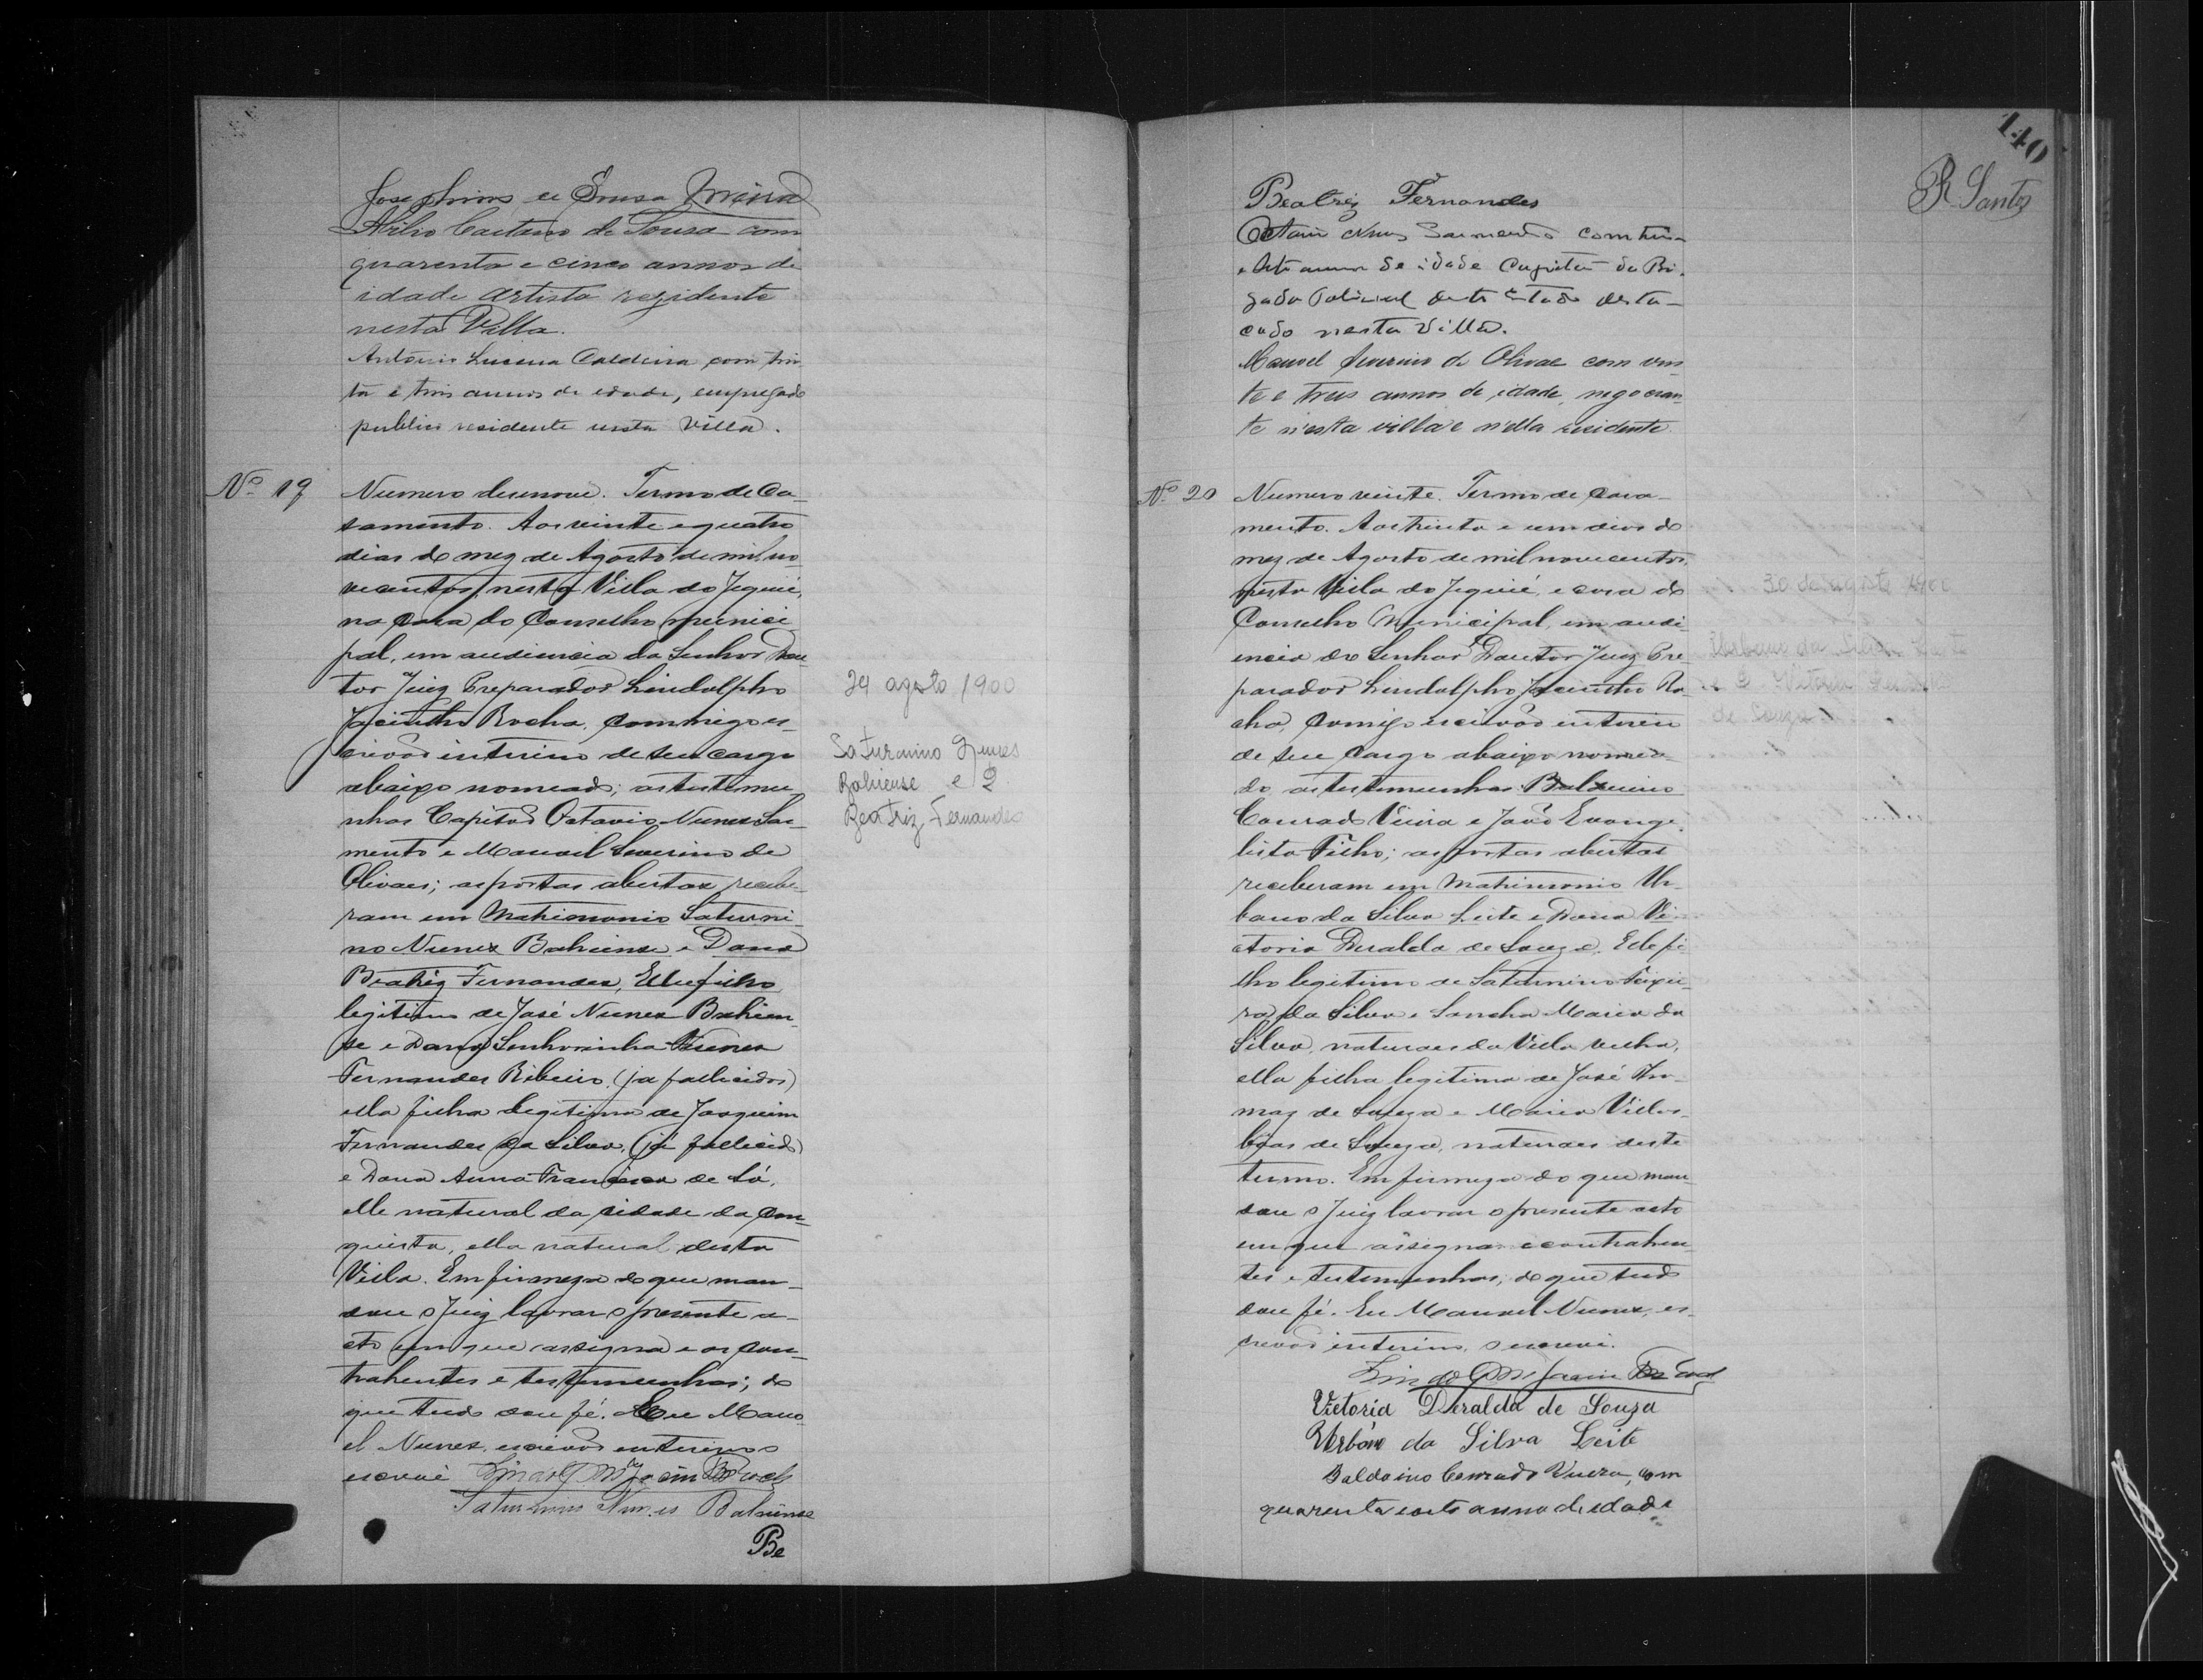 Josephino de Sousa Meira
Abilio Caetano de Sousa com
quarenta e cinco annos de
idade artista rezidente
nesta Villa.
Antonio Lucena Caldeira com trin
ta e tres annos de edade, empregado
publico residente nesta Villa.
Nº 19
Numero desenove. Termo de Ca-
samento. Aos vinte e quatro
dias do mez de Agosto de mil no
vecentos, nesta Villa do Jequié,
na Casa do Conselho munici
pal, em audiencia do Senhor Dou
tor Juiz Preparador Lindolpho
Jacintho Rocha, commigo es-
crivão interino de seu cargo
abaixo nomeado; as testemu
nhas Capitão Octavio Nunes Sar-
mento e Manoel Severino de
Olivaes; as portas abertas recebe-
ram em Matrimonio Saturni-
no Nunes Bahiense e Dona
Beatriz Fernandes, Elle filho
legitimo de José Nunes Bahien-
se e Dona Senhorinha Nunes
Fernandes Ribeiro (ja fallecidos)
ella filha legitima de Joaquim
Fernandes da Silva, (já fallecido)
e Dona Anna Francisca de Sá,
elle natural da cidade da Con-
quista, ella natural desta
Villa. Em firmeza do que man-
dou o Juiz lavrar o presente a-
cto em que assigna e os con-
trahentes e testemunhas; do
que tudo dou fé. Eu Mano
el Nunes, escrivão interino o
escrevi
Saturnino Nunes Bahiense
Be
24 agosto 1900
Saturnino Nunes
Bahiense e D.
Beatriz Fernandes
140
R Santos
Beatriz Fernandes
Octavio Nunes Sarmento com trin-
e sete annos de idade Capitão da Bri-
gada Policial deste Estado desta-
cado nesta Villa.
Manoel Severino de Olivae com vin
te e tres annos de idade, negocian
te n'esta villa e n'ella residente
Nº 20
Numero vinte. Termo de Casa-
mento. Aos trinta e um dias do
mez de Agosto de mil novecentos,
nesta Villa do Jequié, e casa do
Conselho Municipal, em audi-
encia do Senhor Doutor Juiz Pre-
parador Lindolpho Jacintho Ro-
cha, comigo escrivão interin
de seu cargo abaixo nomea-
do as testemunhas Balduino
Conrado Vieira e João Evange-
lista Filho; as portas abertas
receberam em Matrimonio Ur-
bano da Silva Leite e Dona Vi-
ctoria Deralda de Souza. Elle fi-
lho legitimo de Saturnino Teixei-
ra da Silva e Sancha Maria da
Silva, naturaes da Villa Velha,
ella filha legitima de José Tho-
maz de Souza e Maria Villas-
bôas de Souza, naturaes deste
termo. Em firmeza do que man-
dou o Juiz lavrar o presente acto
em que assigna e contrahen-
tes e testemunhas, do que tudo
dou fé. Eu Manoel Nunes, es-
crivão interino, o escrevi.
Victoria Deralda de Souza
Urbano da Silva Leite
Baldoino Conrado Vieira, com
quarenta e oito anno de idade
30 de agosto 1900
Urbano da Silva Leite
e D. Vitoria
de Souza